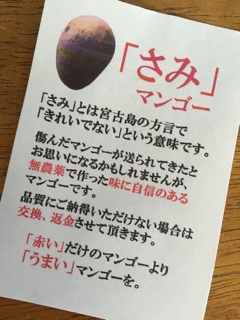 「さみ」
マンゴー
「さみ」とは宮古島の方言で
「きれいでない」という意味です。
傷んだマンゴーが送られてきたと
お思いになるかもしれませんが、
無農薬で作った味に自信のある
マンゴーです。
品質にご納得いただけない場合は
交換、返金させて頂きます。
「赤い」だけのマンゴーより
「うまい」マンゴーを。